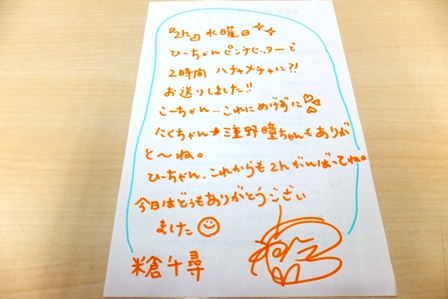 『2h』水曜日
ひーちゃんピンチヒッターで
2時間 ハチャメチャに?!
お送りしました!!
こーちゃん...これにめげずに
にくちゃん★三重野瞳ちゃんもありが
と〜ね。
ひーちゃん、これからも2hがんばってね。
今日はどうもありがとうござい
ました
米倉千尋